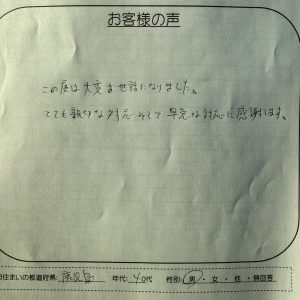 お客様の声
この度は大変お世話になりました。
とても親切な対応そして早急な対応に感謝します。
お住まいの都道府県: 年代: 40代 性別: 男・女・他・無回答